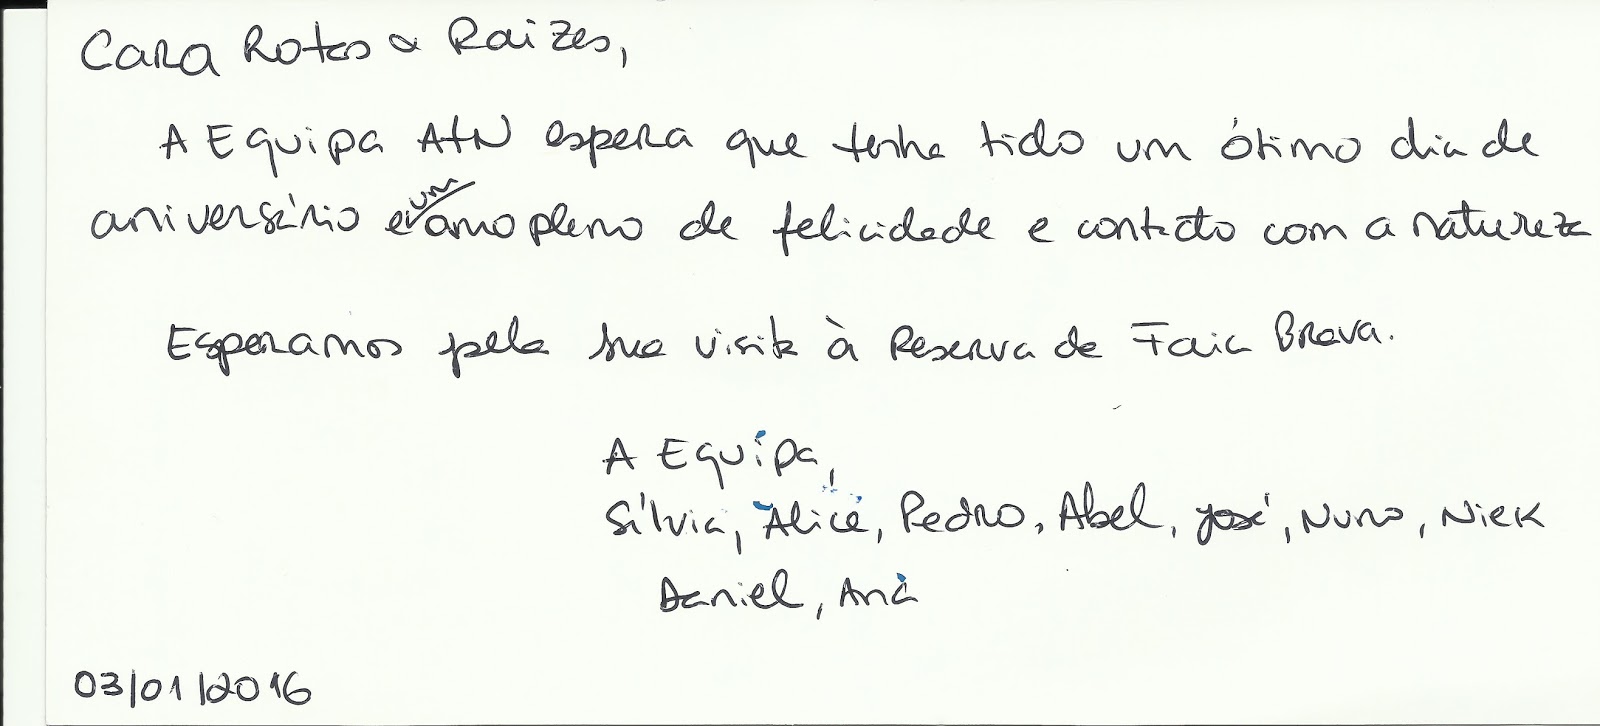 Cara Rotas e Raizes,
A Equipa AtN espera que tenha tido um ótimo dia de
aniversário e um ano pleno de felicidade e contacto com a natureza
Esperamos pela sua visita à Reserva da Faia Brava.
A Equipa,
Sílvia, Alice, Pedro, Abel, José, Nuno, Niek
Daniel, Ana
03/01/2016